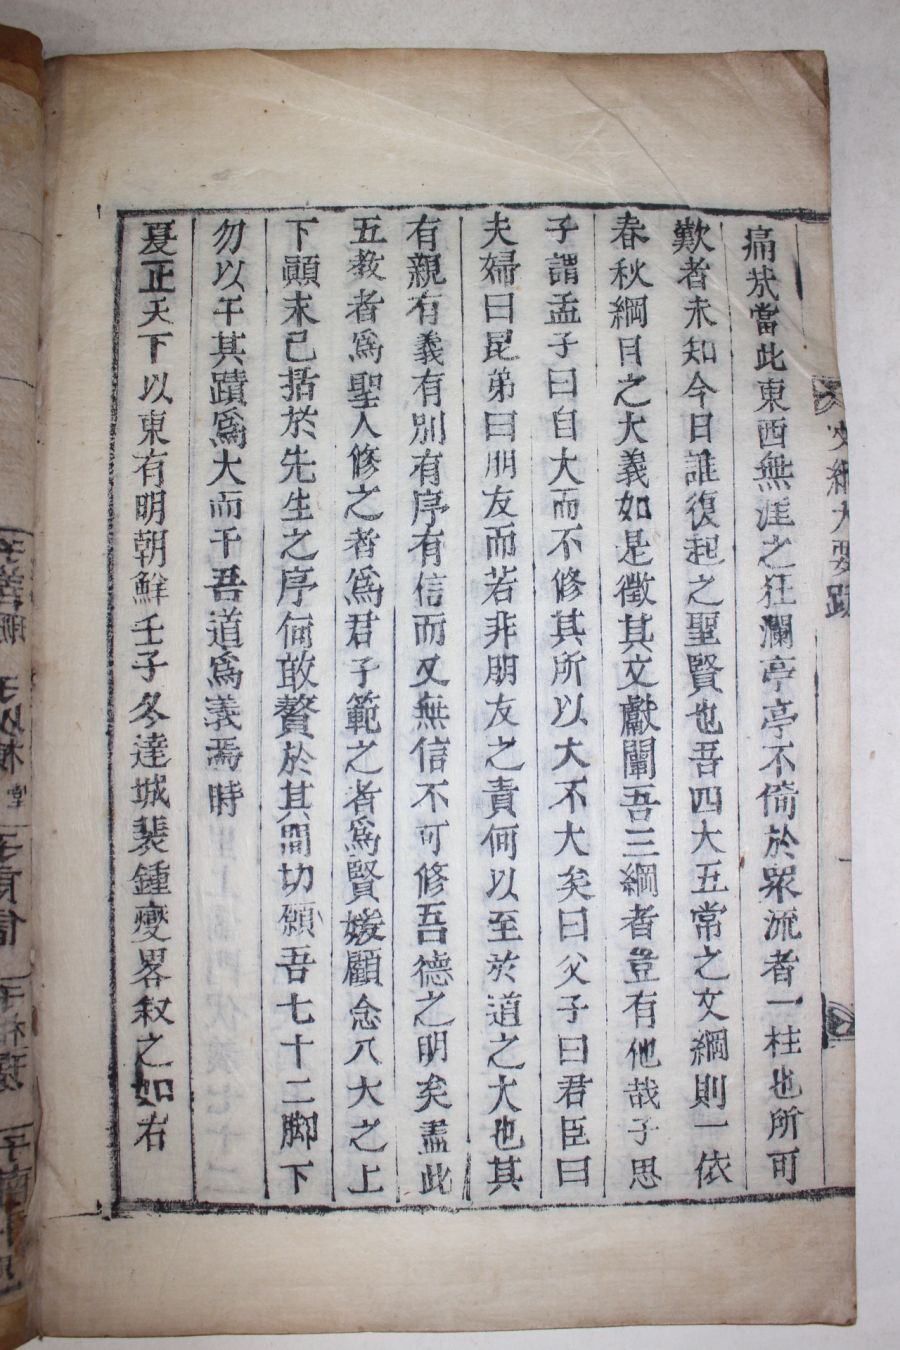 痛哉當此東西無涯之狂瀾亭亭不倚於眾流者一柱也所可
歎者未知今日誰復起之聖賢也吾四大五常之文綱則一依
春秋綱目之大義如是徵其文獻闡吾三綱者豈有他哉子思
子謂孟子曰自大而不修其所以大不大矣曰父子曰君臣曰
夫婦曰昆弟曰朋友而若非朋友之責何以至於道之大也其
有親有義有別有序有信而又無信不可修吾德之明矣盖此
五教者爲聖人修之者爲君子範之者爲賢媛顧念八大之上
下顚末已括於先生之序何敢贅於其間切願吾七十二脚下
勿以干其蹟爲大而干吾道爲義焉時
夏正天下以東有明朝鮮壬子冬達城裴鍾燮畧叙之如右
文綱大要跋
一